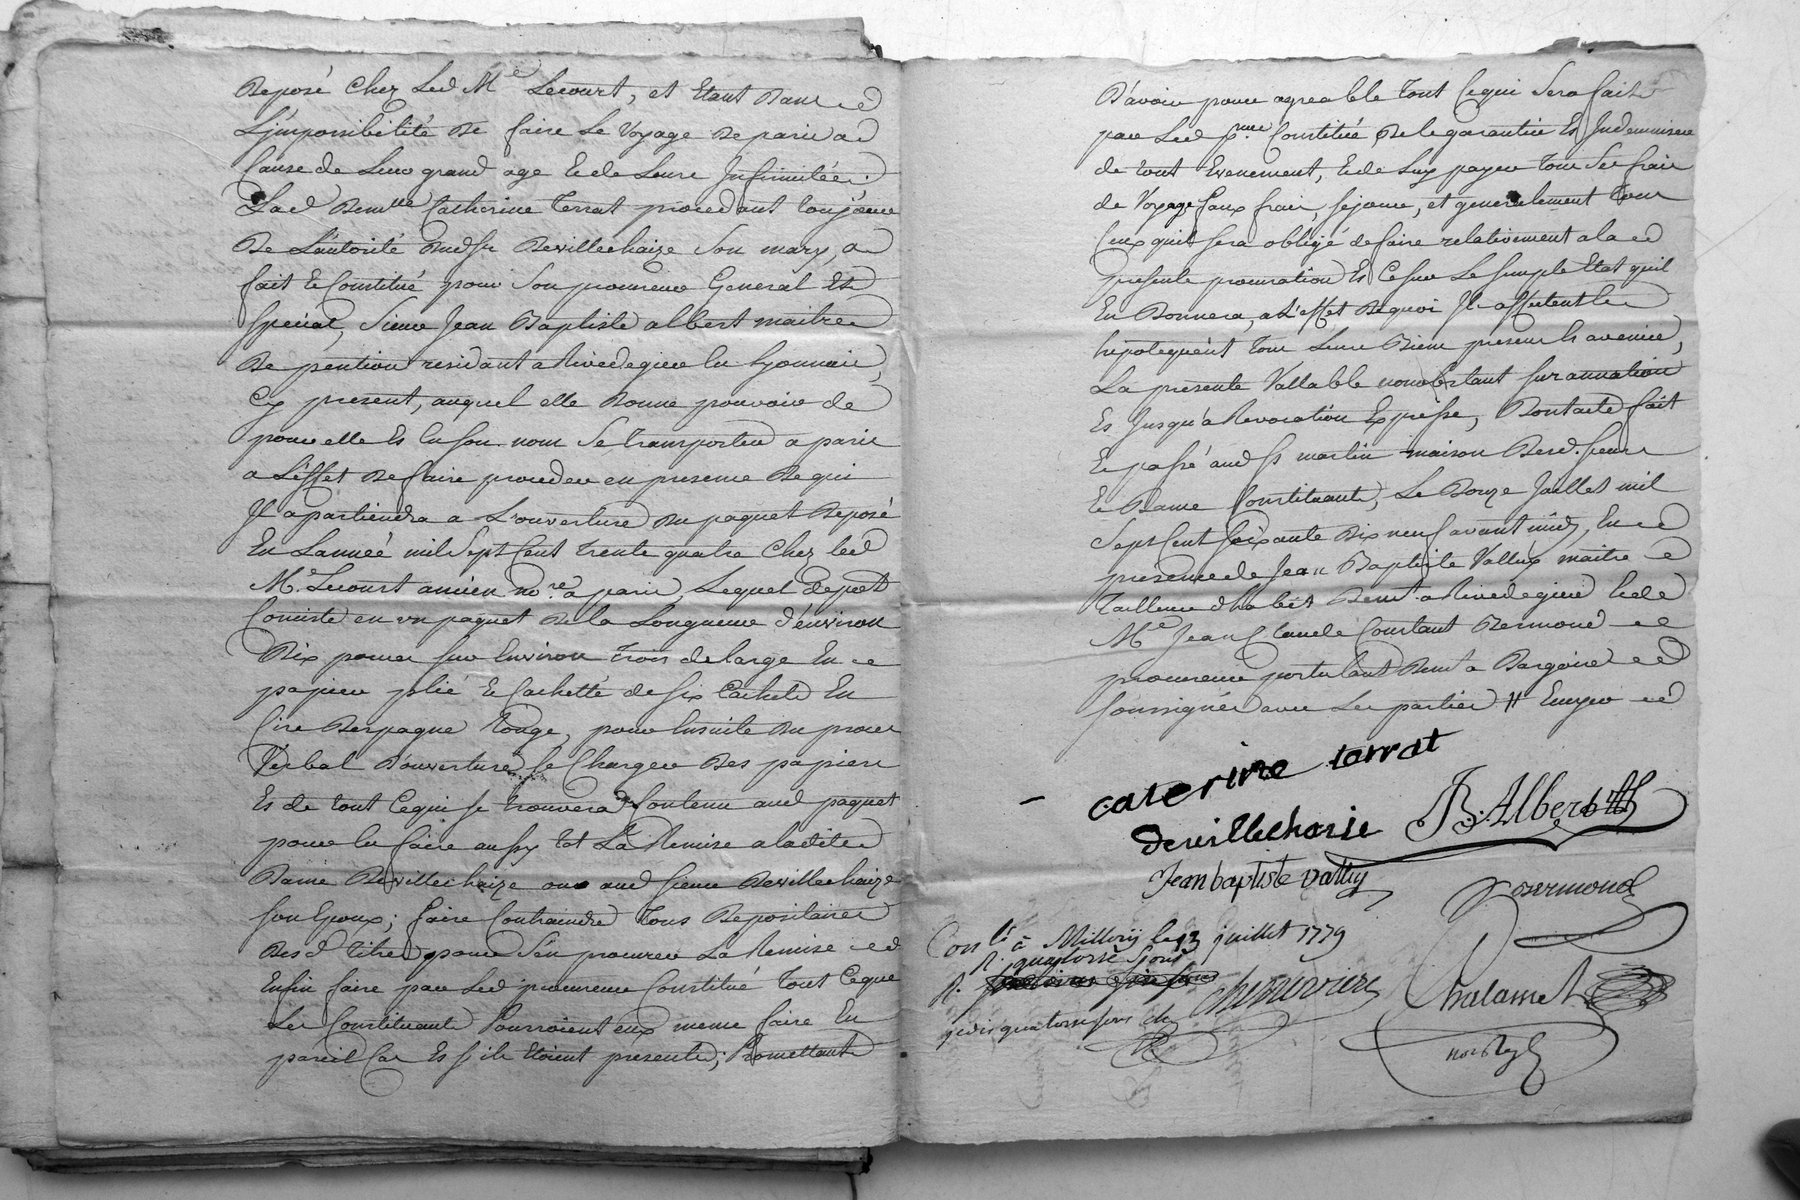 Deposé chez Led Me Lecourt, et Etant Dans
L'jmpossibilité De faire Le Voyage De paris a
Cause de Leur grand age Et de Leurs Jnfirmitées.
Lad Demlle Catherine Terrat procedant toujours
De L'autorité Dud Sr Devillechaize Son mary, a
fait Et Constitué pour Son procureur General Et
Special, Sieur Jean Baptiste albert maitre
De pention residant a Rivedegier en Lyonnais,
Cy present, auquel elle Donne pouvoir de
pour elle Et En Son nom Se transporter a paris
a L'effet De faire proceder en presence De qui
Jl apartiendra a L'ouverture Du paquet Deposé
En Lanneé mil Sept Cent Trente quatre Chez led
Me Lecourt ancien nore a paris, Lequel depot
Consiste en un paquet De la Longueur d'énviron
Dix pouces sur Environ trois de large En
papier plié Et Cachetté de six Cachets En
Cire Despagne Rouge, pour Ensuite Du proces
Verbal D'ouverture Se Charger Des papiers
Et de tout Cequi se trouvera Contenu aud paquet
pour En faire aussy tot La Remise a ladite
Dame Devillechaize ou aud sieur Devillechaize
Son Epoux; faire Contraindre Tous Depositaires
Desd titres pour S'en procurer La Remise
Enfin faire par Led procureur Constitué Tout Ceque
Les Constituants Pourroient eux meme faire En
pareil Cas Et S'ils Etoient presents; Promettants
D'avoir pour agreable Tout Cequi Sera fait
par Led Constitué De le garantir Et Jndemniser
de tout Evenement, Et de Luy payer Tous Ses frais
de Voyage faux frais, séjour, et generalement Tous
Ceux quil sera obligé de faire relativement a la
presente procuration Et Ce Sur Le simple Etat quil
En Donnera, a L'effet Dequoi Jls affectent Et
hipotequent Tous Leurs Biens presents Et avenir,
La presente Vallable nonobstant Surannation
Et Jusqu'a Revocation Expresse, Dont acte fait
Et passé aud St martin maison Desd. sieur
Et Dame Constituants, Le Douze Juillet mil
Sept Cent soixante Dix neuf avant midy, En
presence de Jean Baptiste Vallux maitre
Tailleur d'habits Demt a Rivedegier Et de
Me Jean Claude Constant Bermond
procureur postulant Demt a Dargoire
soussignés avec Les parties
caterine terrat
devillechaise J B. Albert
Jean baptiste vallux
Bermond
Conlé à Millery le 13 juillet 1779
R. quatorse sous
Chalamet